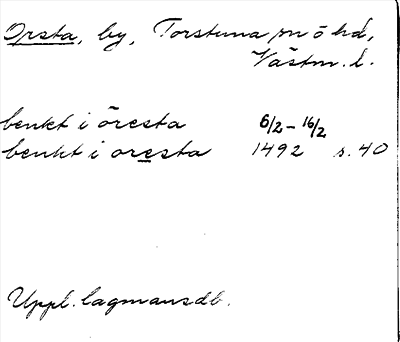 Orsta, by, Torstuna sn ö hd,
Västm. l.
benkt i öresta 6/2-16/2
benkt i oresta 1492 s. 40
Uppl. lagmansdb.